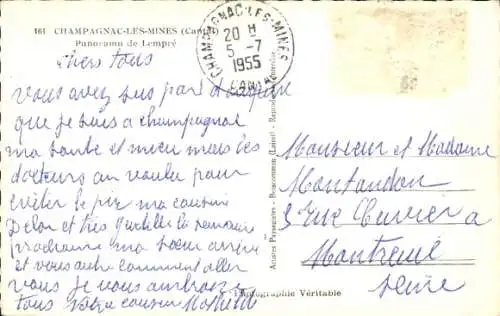 161 CHAMPAGNAC-LES-MINES (Cantal)
Panorama de Lempré
CHAMPAGNAC-LES-MINES
20 H
5 -7
1955
CANTAL
chers tous
vous avez sus par
que je suis a champagnac
ma sante et mieu mais les
docteurs on voulu pour
éviter le pir ma cousine
et tres gentille la semaine
prochaine ma soeur arrive
et vous autre comment aller
vous je vous embrasse
tous votre cousin
Monsieur et Madame
Montandon
3 rue Cuvier a
Montreuil
Seine
Photographie Véritable